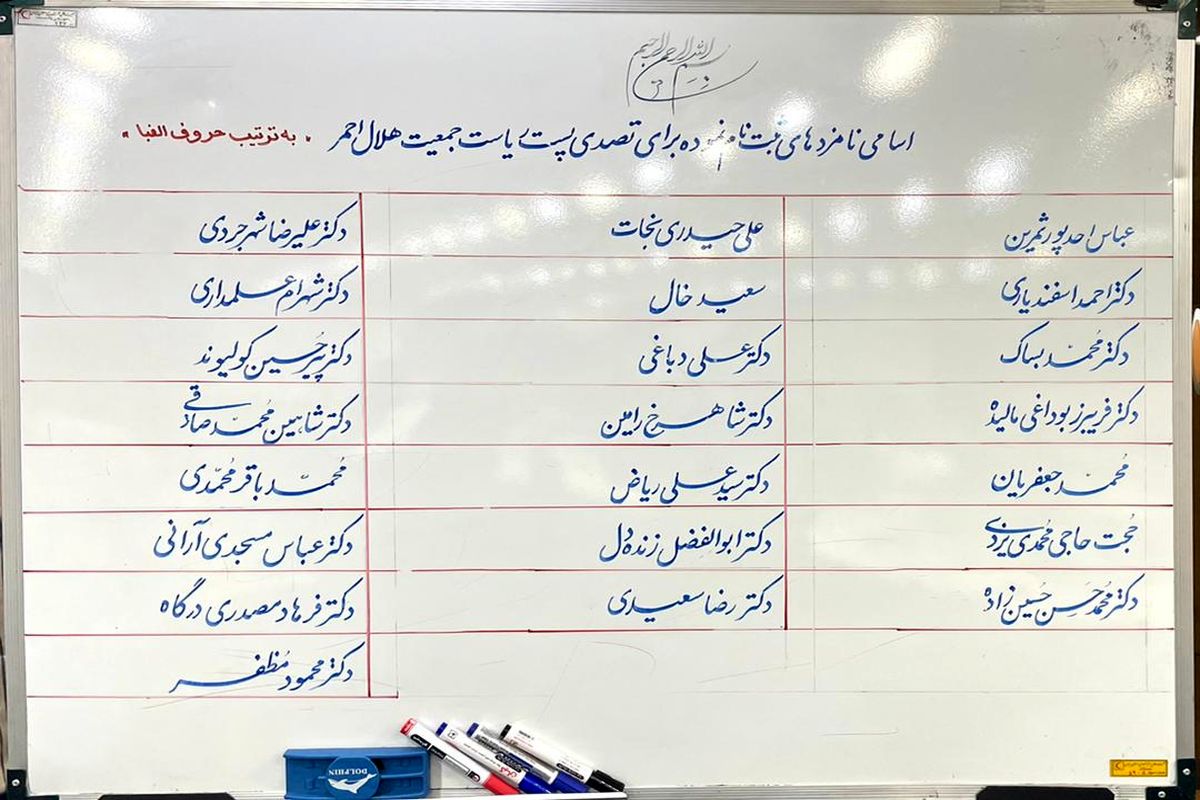 بسم الله الرحمن الرحیم
اسامی نامزدهای ثبت نام نموده برای تصدی پست ریاست جمعیت هلال احمر «به ترتیب حروف الفبا»
عباس احدپور ثمرین
دکتر احمد اسفندیاری
دکتر محمد بساک
دکتر فریبرز بوداغی مالیده
محمد جعفریان
حجت حاجی محمدی یزدی
دکتر محمدحسن حسین زاده
علی حیدری نجات
سعید خال
دکتر علی دباغی
دکتر شاهرخ رامین
دکتر سید علی ریاض
دکتر ابوالفضل زنده دل
دکتر رضا سعیدی
دکتر علیرضا شهرجردی
دکتر شهرام علمداری
دکتر پیرحسین کولیوند
دکتر شاهین محمدصادقی
محمدباقر محمدی
دکتر عباس مسجدی آرانی
دکتر فرهاد مصدری درگاه
دکتر محمود مظفر
DOLPHIN